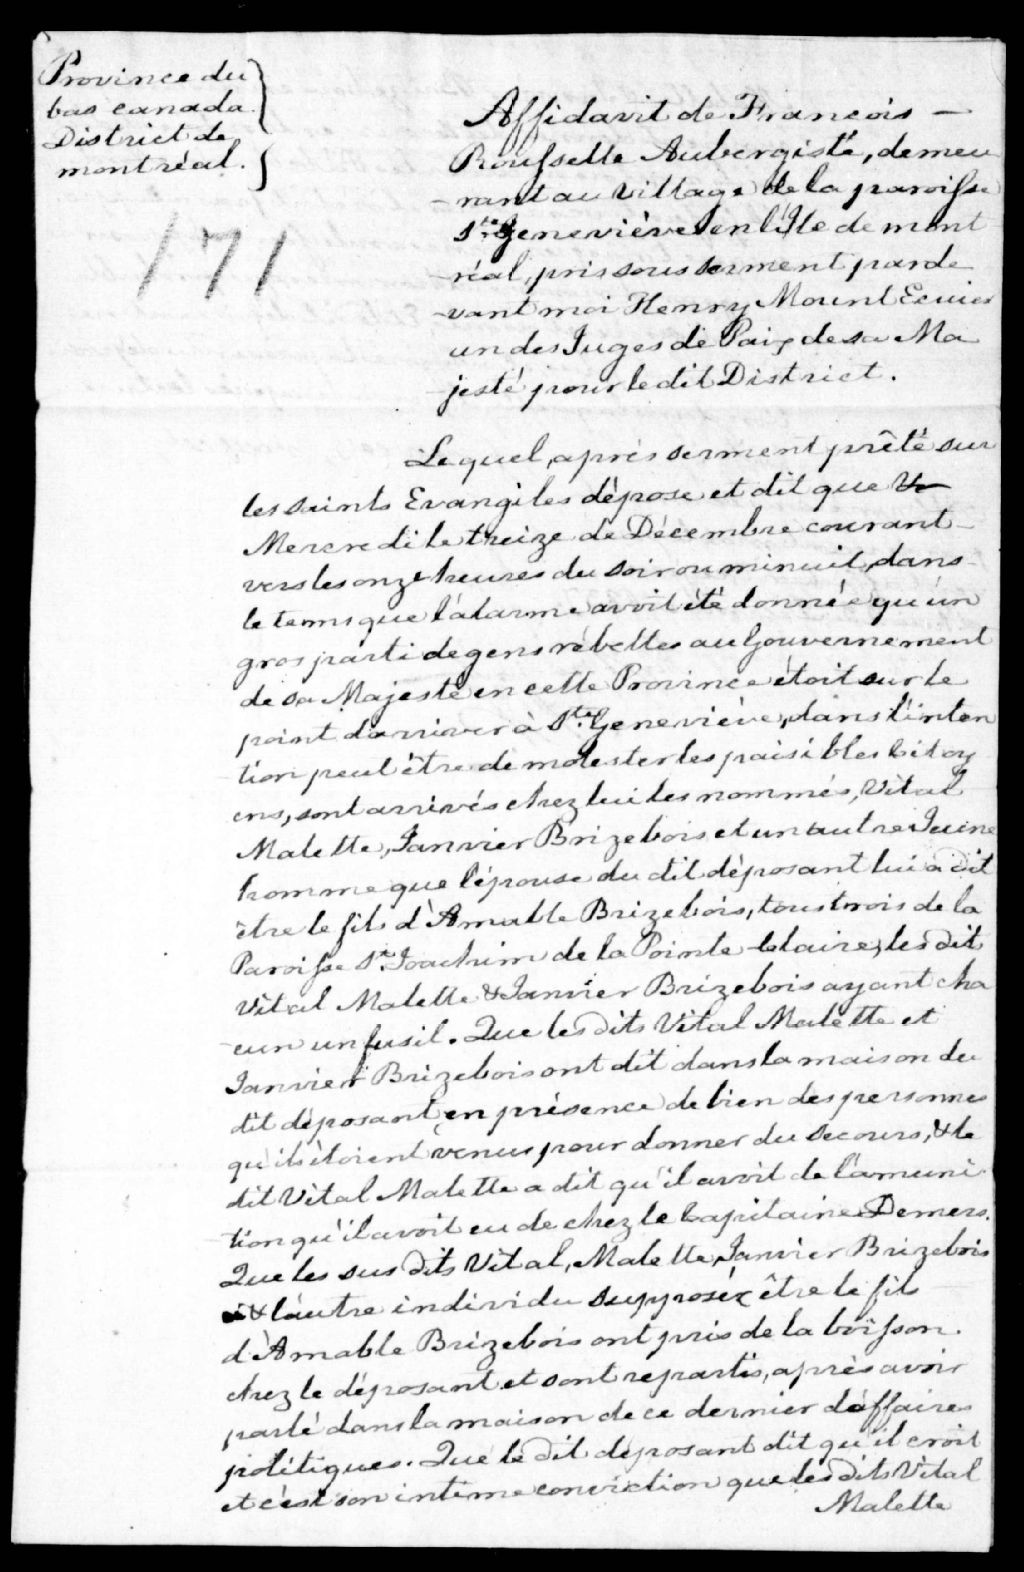 Province du
bas canada.
District de
montréal.
171
Affidavit de François —
Rousselle Aubergiste, demeu
-rant au village de la paroisse
Ste. Geneviéve en l'île de mont
-réal, pris sous serment parde
-vant moi Henry Mount Ecuier
un des Juges de Paix de sa Ma
-jesté pour le dit District.
Lequel, après serment prêté sur
les saints Evangiles dépose et dit que
Mercredi le treize de Décembre courant
vers les onze heures du soir ou minuit, dans
le tems que l'alarme avoit été donnée qu'un
gros parti de gens rébelles au Gouvernement
de sa Majesté en cette Province étoit sur le
point d'arriver à Ste. Geneviéve, dans l'inten
-tion peut être de molester les paisibles Citoy
-ens, sont arrivés chez lui les nommés, Vital
Malette, Janvier Brizebois et un autre Jeune
homme que l'épouse du dit déposant lui a dit
être le fils d'Amable Brizebois, tous trois de la
Paroisse St. Joachim de la Pointe-Claire, les dit
Vital Malette & Janvier Brizebois ayant cha
-cun un fusil. Que les dits Vital Malette et
Janvier Brizebois ont dit dans la maison du
dit déposant, en présence de bien des personnes
qu'ils étoient venus pour donner du secours, & le
dit Vital Malette a dit qu'il avoit de l'amuni
-tion qu'il avoit eu de chez le Capitaine Demers.
Que les sus dits Vital, Malette, Janvier Brizebois
& l'autre individu supposé être le fils
d'Amable Brizebois ont pris de la boisson
chez le déposant et sont repartis, après avoir
parlé dans la maison de ce dernier d'affaires
politiques. Que le dit déposant dit qu'il croit
et c'est son intime conviction que les dits Vital
Malette